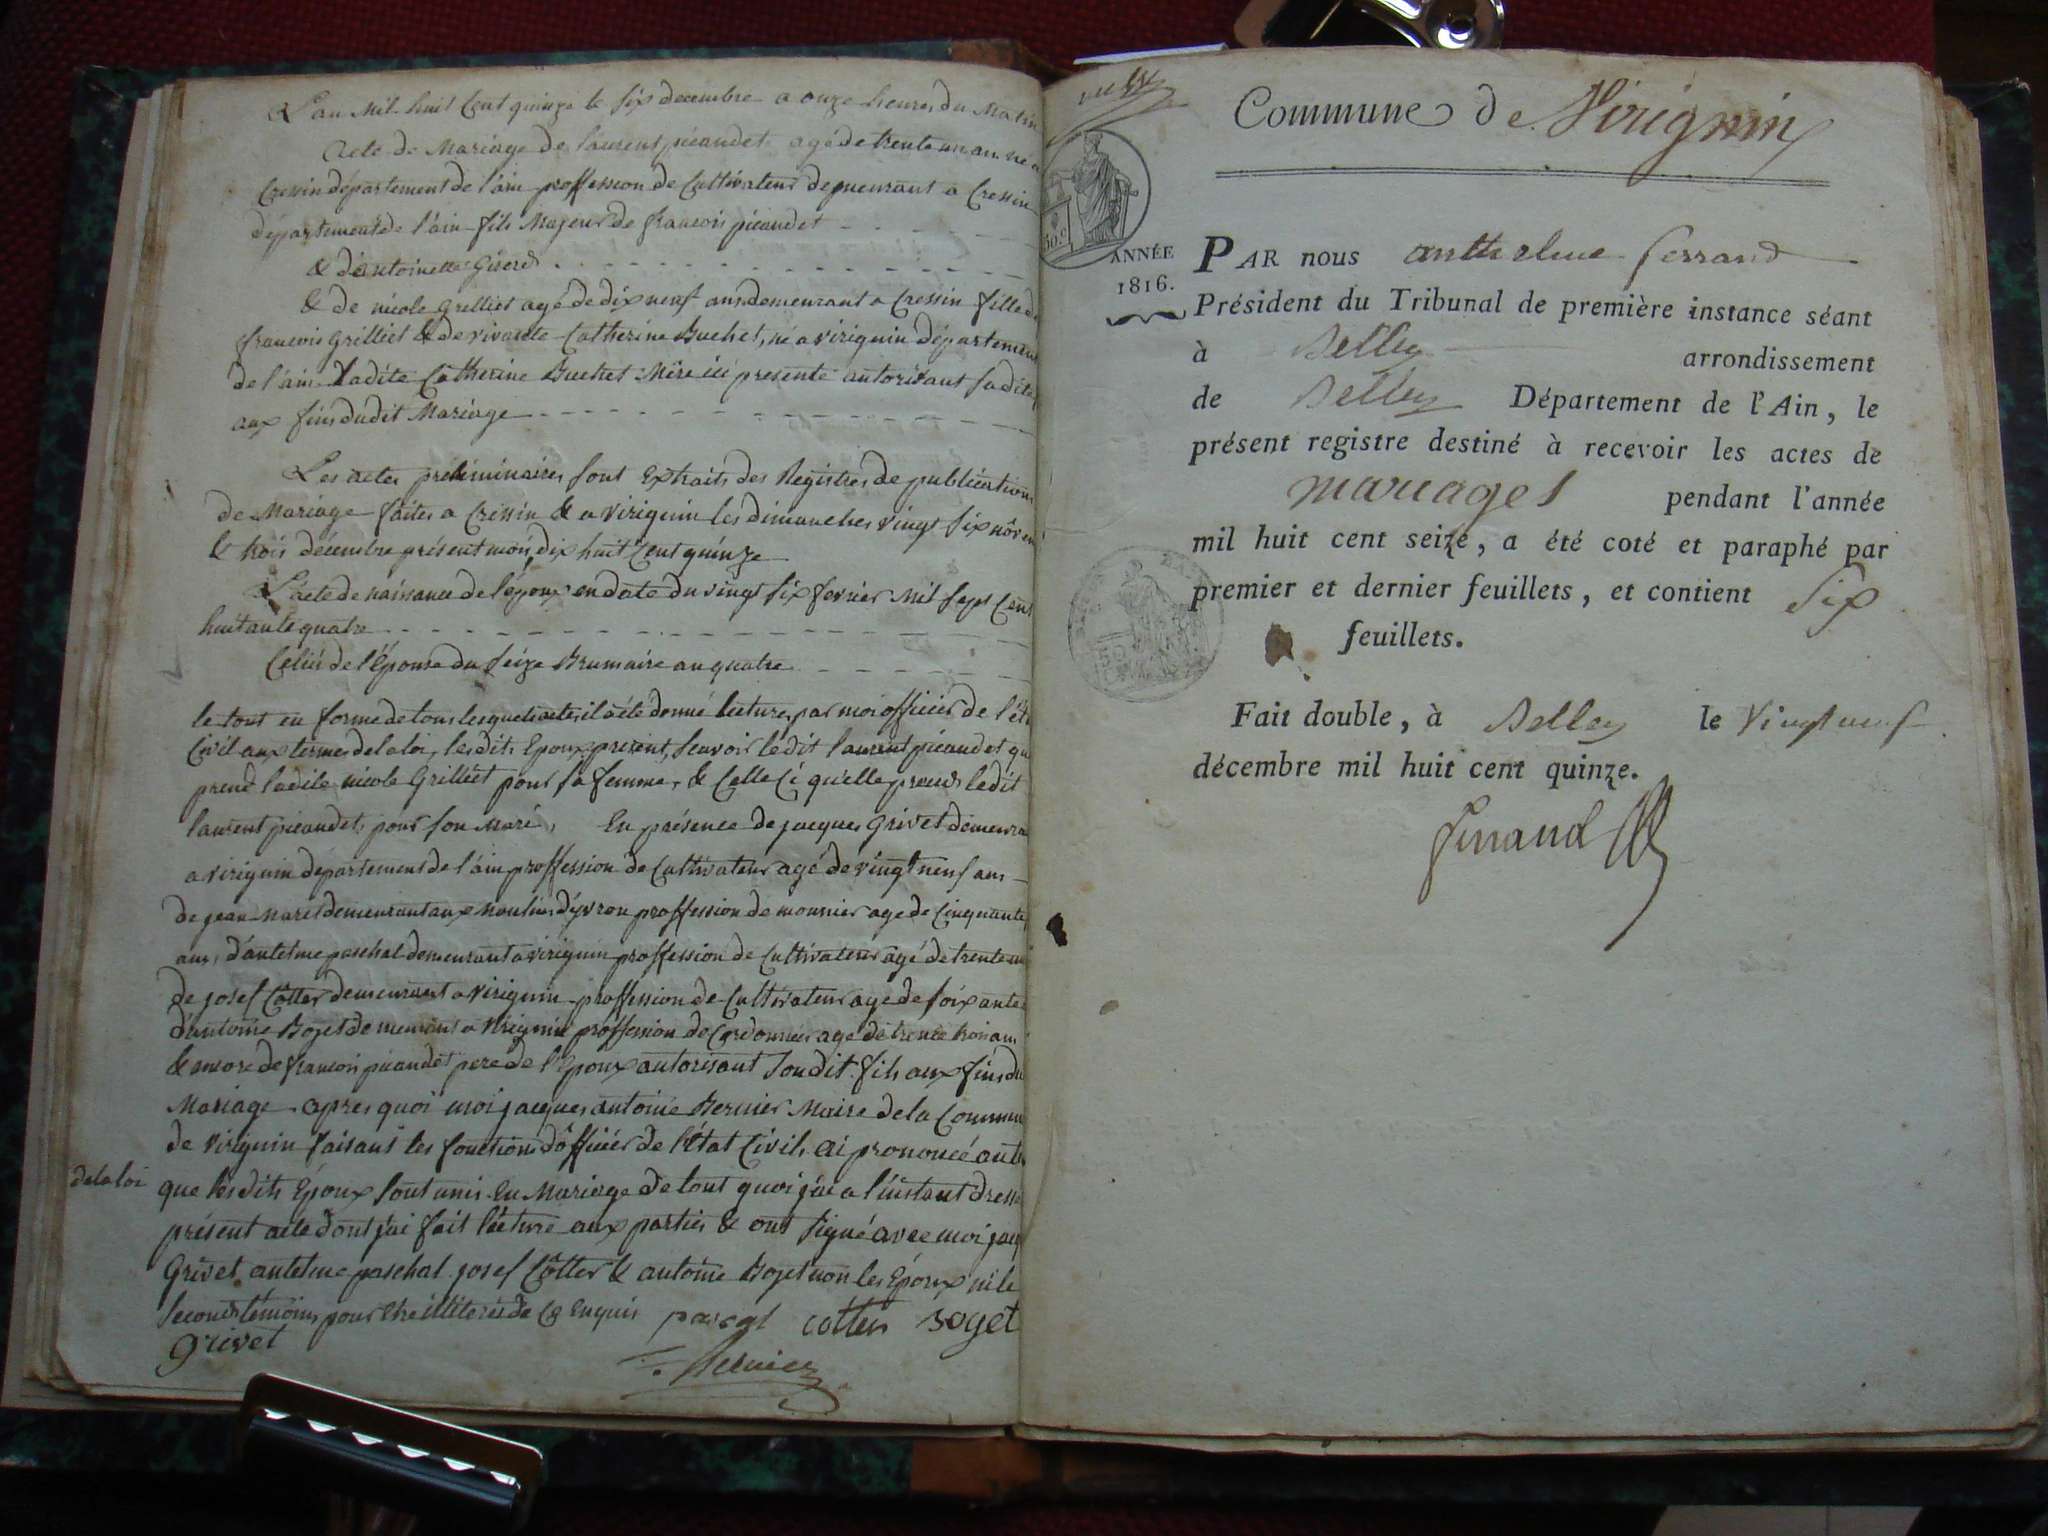 L'an Mil huit Cent quinze le six decembre a onze heures du Matin
Acte de Mariage de laurent picaudet agé de trente un an né a
Cressin département de l'ain proffession de Cultivateur demeurant a Cressin
département de l'ain fils Majeur de francois picaudet
& d'antoinette Girerd
& de nicole Grilliet agé de dix neuf ans demeurant a Cressin fille de
francois Grilliet & de vivante Catherine Buchet, né a virignin département
de l'ain ladite Catherine Buchet Mère ici presente autorisant sadite
aux fins dudit Mariage
Les actes préliminaires sont Extraits des Registres de publications
de Mariage faites a Cressin & a virignin les dimanches vingt six nov
& trois décembre présent mois, dix huit Cent quinze
L'acte de naissance de l'époux en date du vingt six fevrier Mil sept Cent
huitante quatre
Celui de l'Épouse du seize Brumaire an quatre
le tout en forme de tous lesquels actes il a été donné lecture par moi officier de l'ét
Civil aux termes de la loi, lesdits Epoux present, scavoir ledit laurent picaudet qu
prend ladite nicole Grilliet pour sa femme, & Celle Ci qu'elle prend ledit
laurent picaudet pour son Mari, En présence de jacques Grivet demeura
a virignin département de l'ain proffession de Cultivateur agé de vingt neuf ans
de jean Maret demeurant aux Moulins d'yvron proffession de mounier age de Cinquante
ans, d'antelme paschal demeurant a virignin proffession de Cultivateur agé de trente
de josef Cötter demeurant a virignin proffession de Cultivateur age de soixante
d'antoine Bojet demeurant a virignin proffession de Cordonnier age de trente trois ans
& encore de francois picaudet pere de l'Epoux autorisant sondit fils aux fins du
Mariage. apres quoi moi jacques antoine Bernier Maire de la Commu
de virignin faisant les fonctions d'officier de l'état Civil, ai prononcé au
de la loi
que lesdits Époux sont unis En Mariage de tout quoi j'ai a l'instant dressé
présent acte dont j'ai fait lecture aux parties & ont signé avec moi jacq
Grivet antelme paschal josef Cötter & antoine Bojet non les Époux ni le
second témoin pour être illiterés de Ce Enquis pascal cotter Boget
grivet
Bernier
Commune de Virignin
ANNÉE
1816.
PAR nous anthelme ferrand
Président du Tribunal de première instance séant
à Belley arrondissement
de Belley Département de l'Ain, le
présent registre destiné à recevoir les actes de
mariages pendant l'année
mil huit cent seize, a été coté et paraphé par
premier et dernier feuillets, et contient six
feuillets.
Fait double, à Belley le vingt neuf
décembre mil huit cent quinze.
ferrand